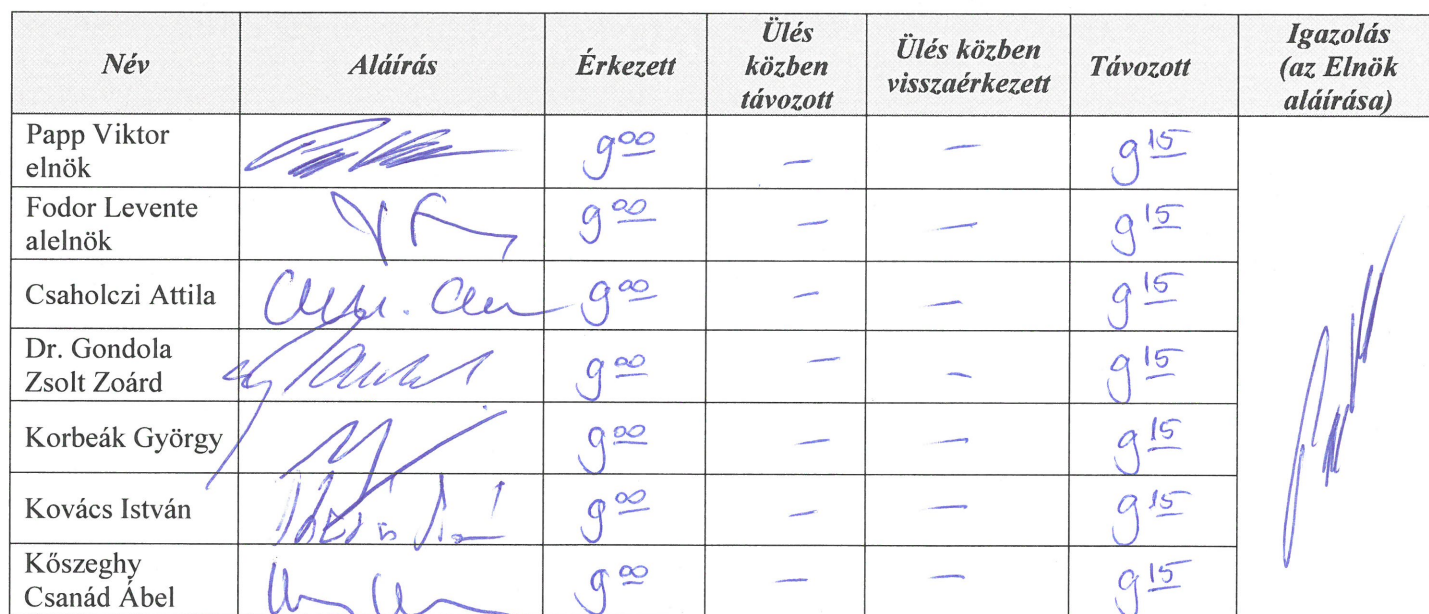 Név Aláírás Érkezett Ülés közben távozott Ülés közben visszaérkezett Távozott Igazolás (az Elnök aláírása)
Papp Viktor elnök 9 00 — — 9 15
Fodor Levente alelnök 9 00 — — 9 15
Csaholczi Attila 9 00 — — 9 15
Dr. Gondola Zsolt Zoárd 9 00 — — 9 15
Korbeák György 9 00 — — 9 15
Kovács István 9 00 — — 9 15
Kőszeghy Csanád Ábel 9 00 — — 9 15